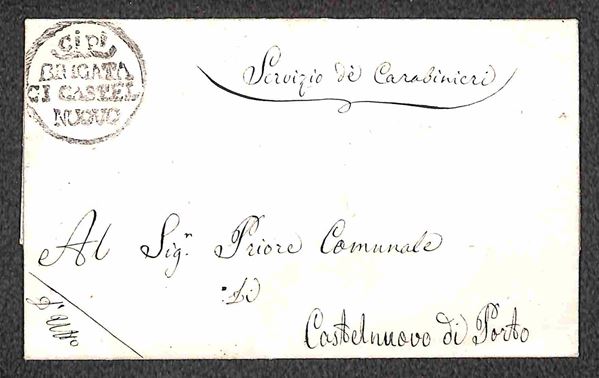 Gipi
BRIGATA
CI CASTEL
NUOVO
Servizio de Carabinieri
Al Sig.r Priore Comunale
di
Castelnuovo di Porto